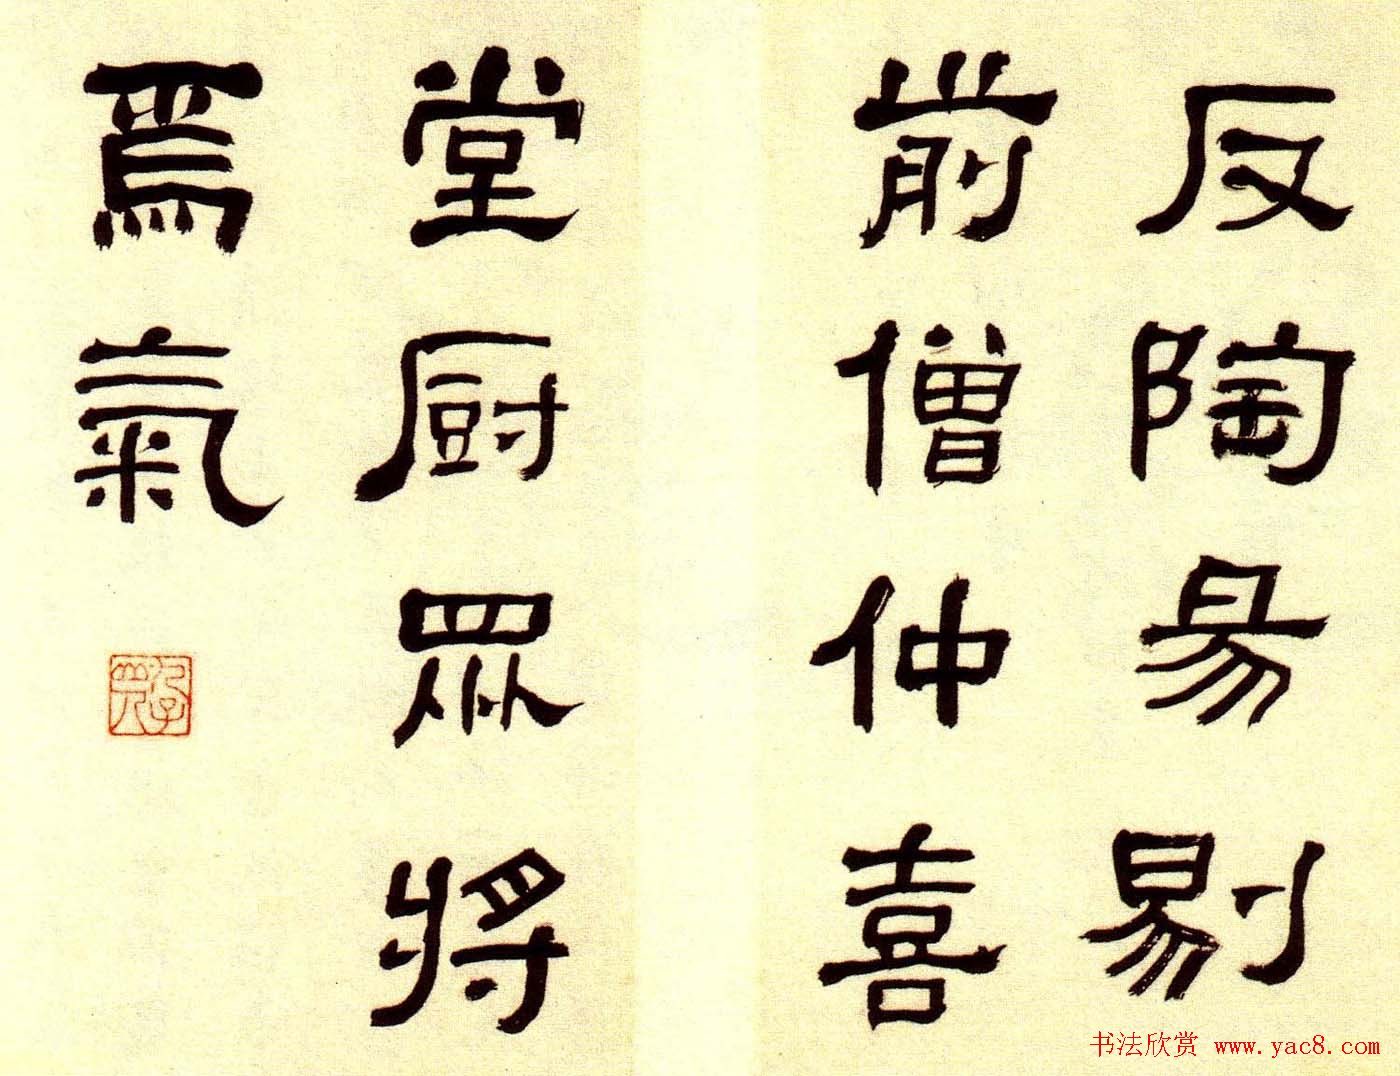 反陶昜剔
前僧仲喜
堂厨眾將
焉氣
书法欣赏 www.yac8.com